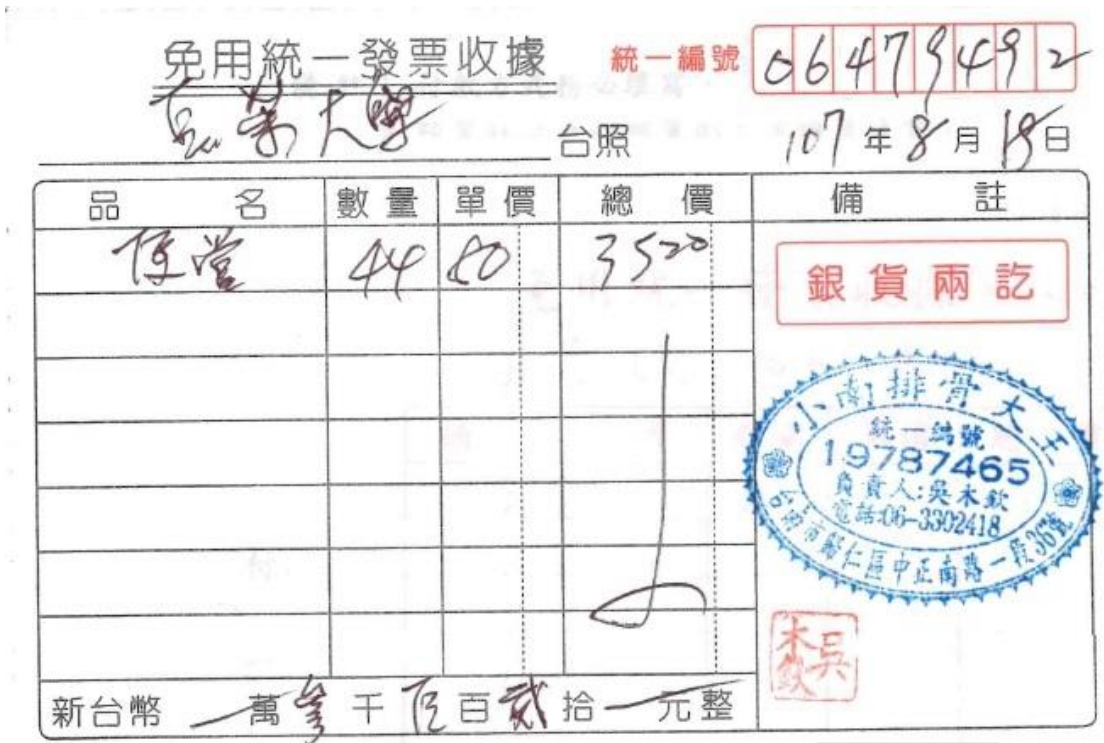 免用統一發票收據 統一編號 06479492
長榮大學 台照 107年8月15日
品名 數量 單價 總價 備註
便當 44 80 3520
銀貨兩訖
小南排骨大王
統一編號
19787465
負責人:吳木欽
電話:06-3302418
台南市歸仁區中正南路一段36號
吳木欽
新台幣 萬參千伍百貳拾 元整